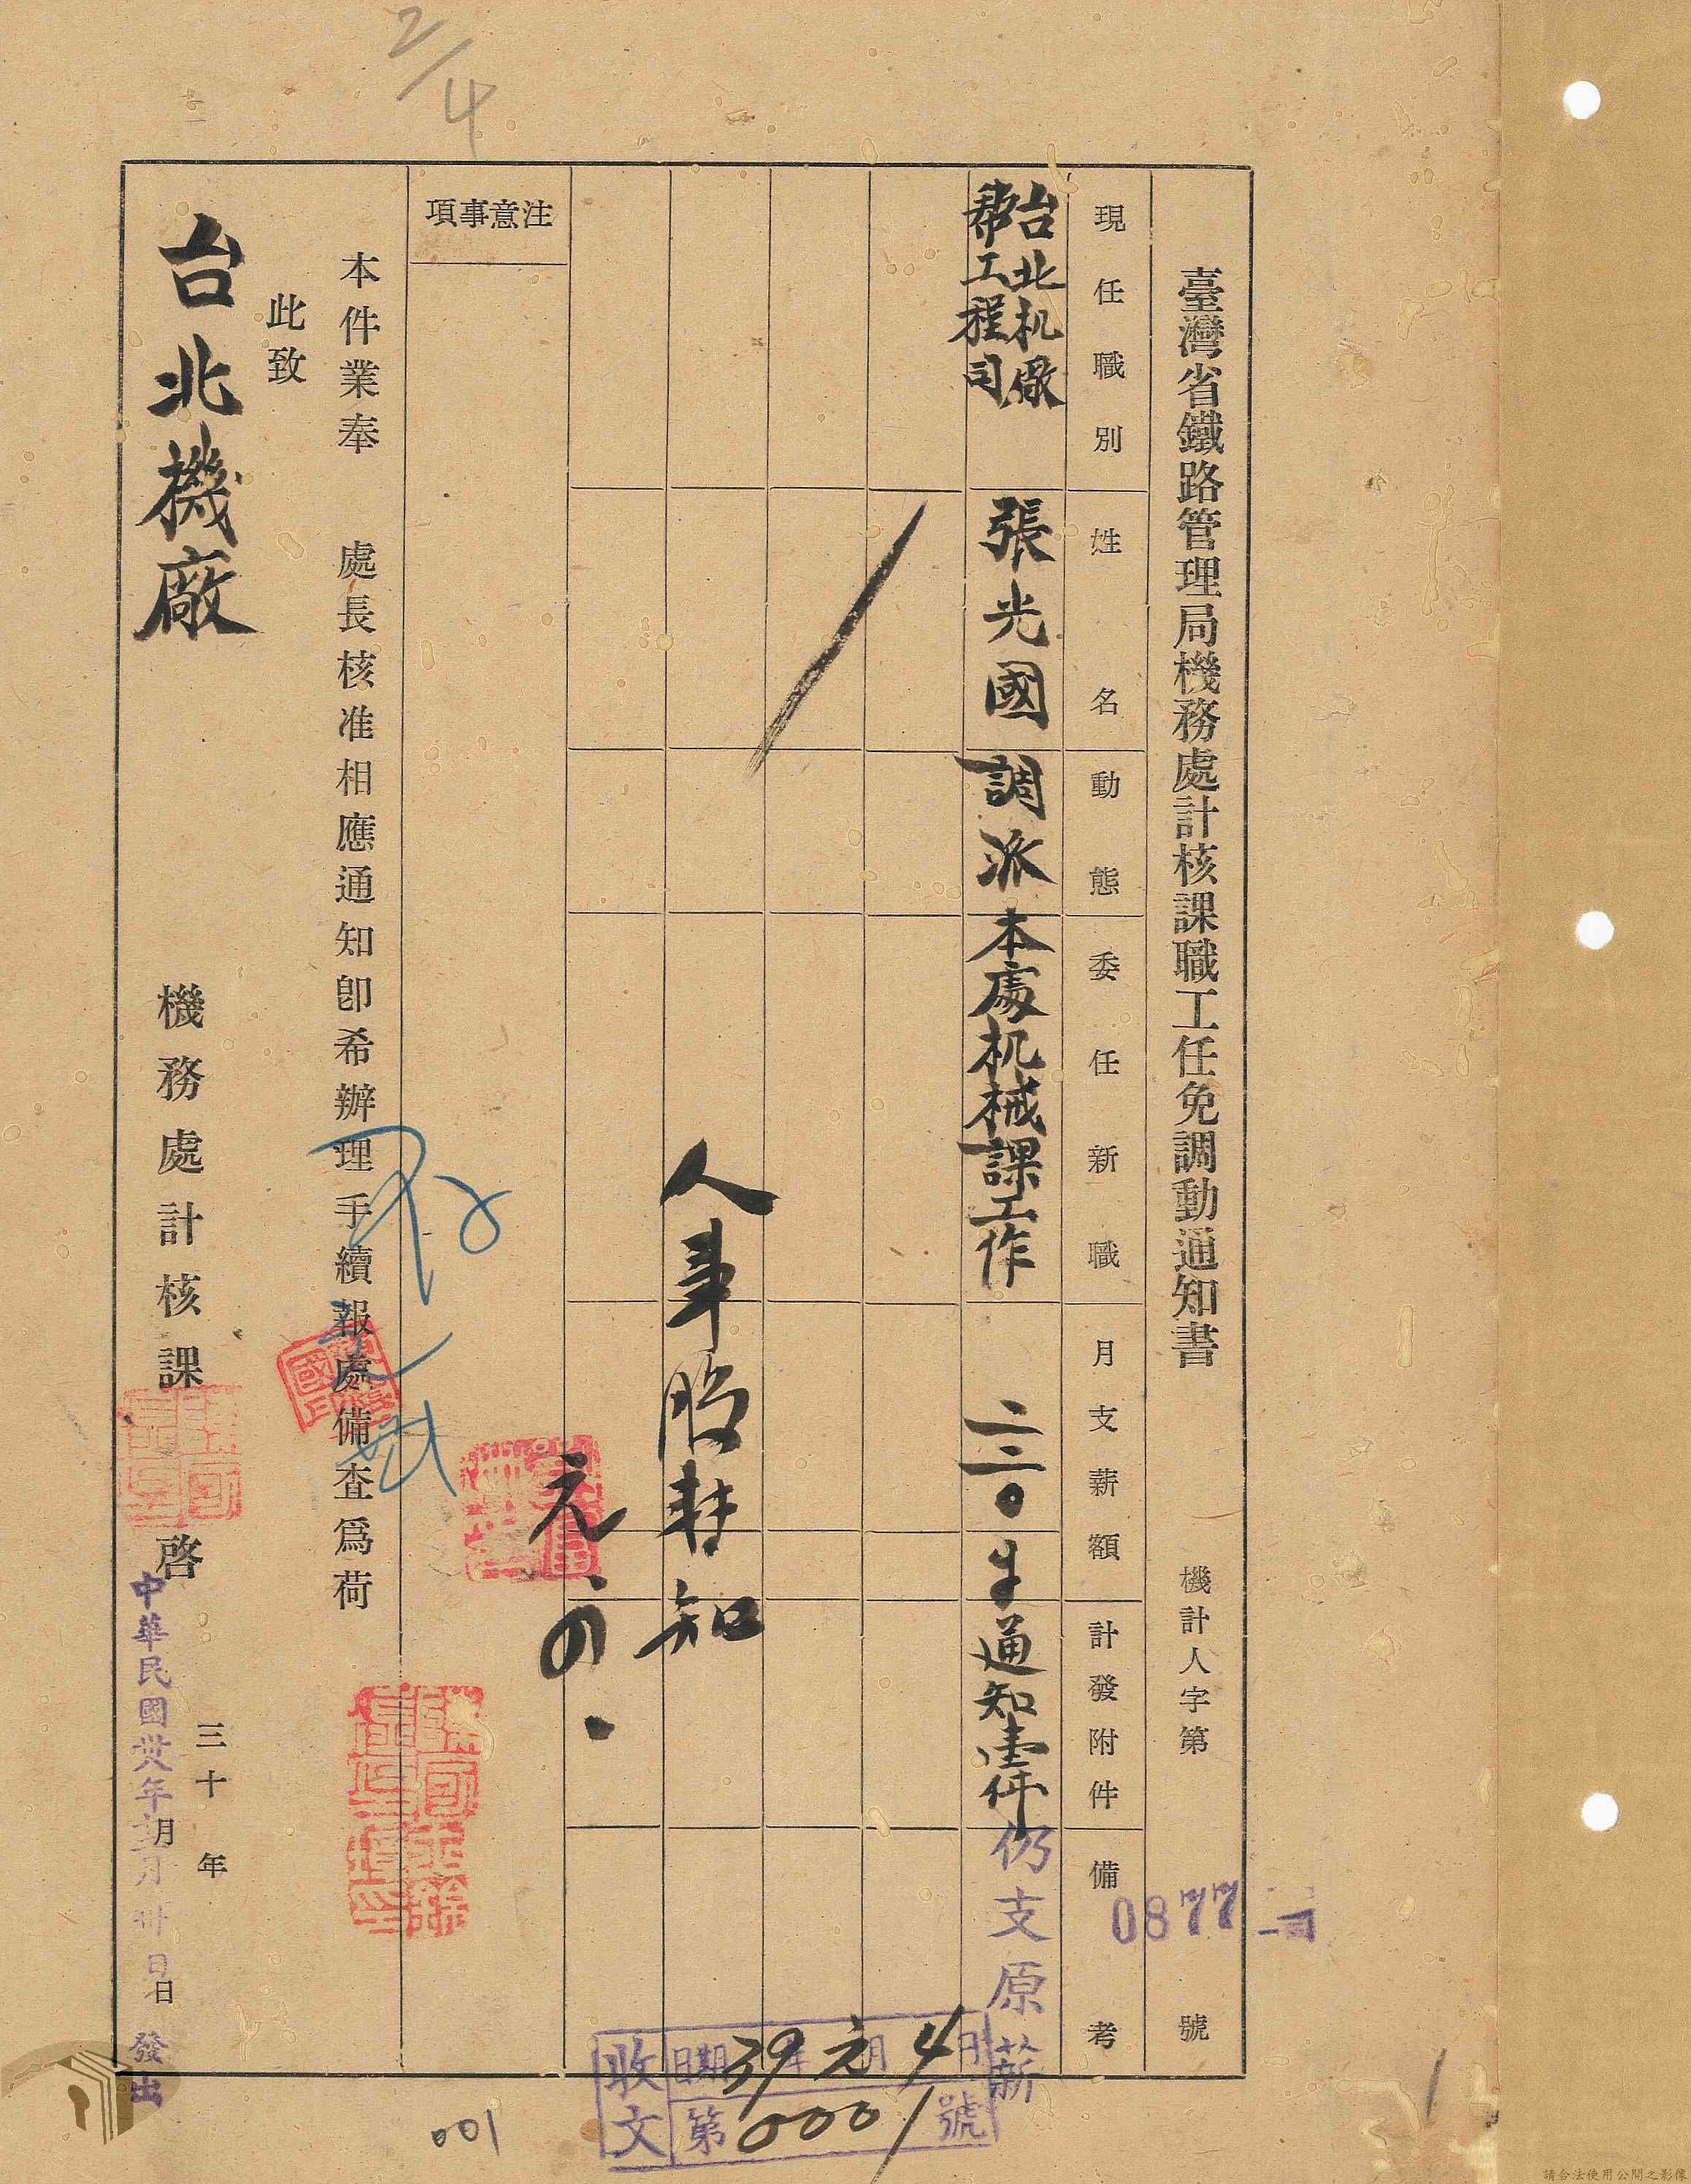 2/4
臺灣省鐵路管理局機務處計核課職工任免調動通知書
機計人字第 0877 號
現任職別
姓名
動態
委任新職
月支薪額
計發附件
備考
台北机廠
帮工程司
張光國
調派
本處机械課工作
二二〇
通知壹件
仍支原薪
人事股替知
元、四.
注意事項
本件業奉 處長核准相應通知卽希辦理手續報處備査爲荷
此致
台北機廠
機務處計核課 啓
三十 年 月 日
中華民國卅八年十二月卅日 發出
收文
日期 39年元月4日
第0001號
001
請合法使用公開之影像